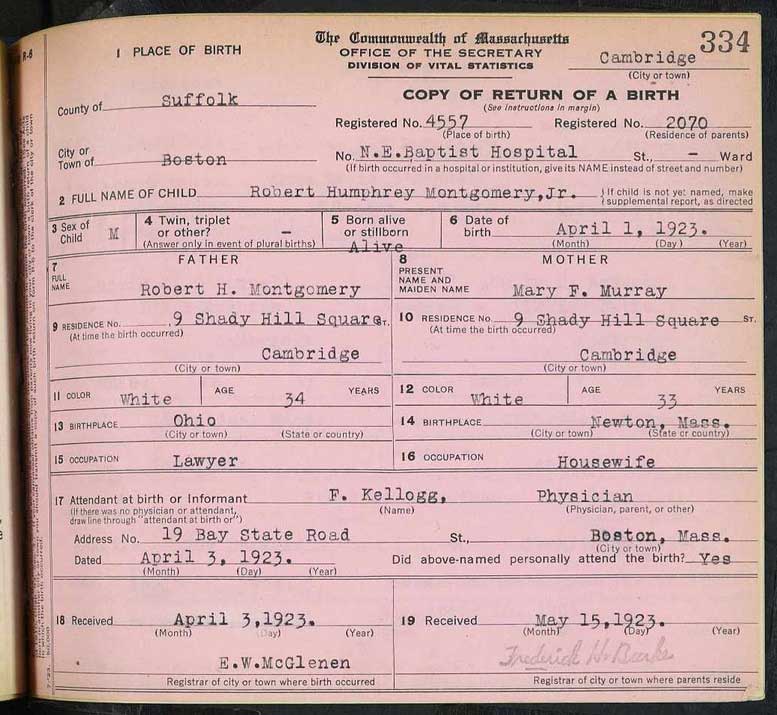 334
The Commonwealth of Massachusetts
1 PLACE OF BIRTH
OFFICE OF THE SECRETARY
DIVISION OF VITAL STATISTICS
Cambridge
(City or town)
COPY OF RETURN OF A BIRTH
(See instructions in margin)
County of Suffolk
Registered No. 4557 Registered No. 2070
(Place of birth) (Residence of parents)
City or
Town of Boston
No. N.E.Baptist Hospital St., – Ward
(If birth occurred in a hospital or institution, give its NAME instead of street and number)
2 FULL NAME OF CHILD Robert Humphrey Montgomery,Jr. } If child is not yet named, make
supplemental report, as directed
3 Sex of
Child M
4 Twin, triplet
or other? –
(Answer only in event of plural births)
5 Born alive
or stillborn
Alive
6 Date of
birth April 1, 1923.
(Month) (Day) (Year)
FATHER
MOTHER
7
FULL
NAME Robert H. Montgomery
8
PRESENT
NAME AND
MAIDEN NAME Mary F. Murray
9 RESIDENCE No. 9 Shady Hill Square ST.
(At time the birth occurred)
Cambridge
(City or town)
10 RESIDENCE No. 9 Shady Hill Square ST.
(At time the birth occurred)
Cambridge
(City or town)
11 COLOR White AGE 34 YEARS
12 COLOR White AGE 33 YEARS
13 BIRTHPLACE Ohio
(City or town) (State or country)
14 BIRTHPLACE Newton, Mass.
(City or town) (State or country)
15 OCCUPATION Lawyer
16 OCCUPATION Housewife
17 Attendant at birth or Informant F. Kellogg, Physician
(If there was no physician or attendant, (Name) (Physician, parent, or other)
draw line through "attendant at birth or")
Address No. 19 Bay State Road St., Boston, Mass.
(City or town)
Dated April 3, 1923. Did above-named personally attend the birth? Yes
(Month) (Day) (Year)
18 Received April 3,1923.
(Month) (Day) (Year)
E.W.McGlenen
Registrar of city or town where birth occurred
19 Received May 15,1923.
(Month) (Day) (Year)
Frederick H. Burke
Registrar of city or town where parents reside